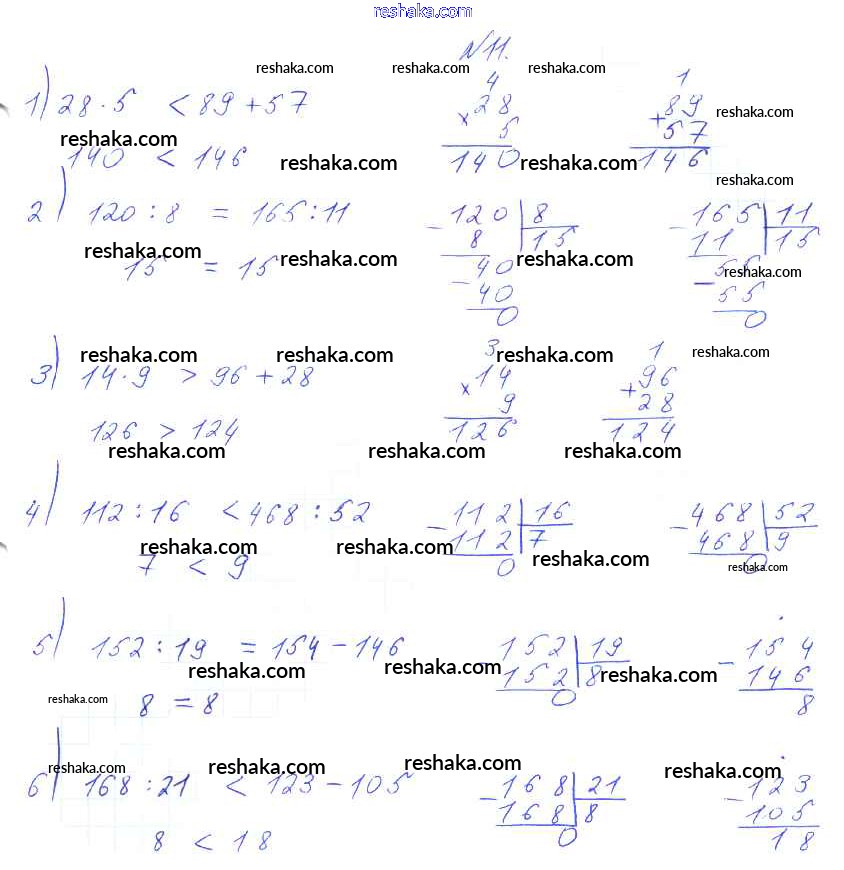 reshaka.com
N11.
reshaka.com reshaka.com reshaka.com
1) 28 · 5 < 89 + 57
4
× 28
5
140
1
+ 89
57
146
reshaka.com
reshaka.com
140 < 146
reshaka.com reshaka.com
reshaka.com
2) 120 : 8 = 165 : 11
- 120 | 8
8 | 15
40
- 40
0
- 165 | 11
11 | 15
55
- 55
0
reshaka.com
15 = 15
reshaka.com reshaka.com
reshaka.com
reshaka.com reshaka.com reshaka.com reshaka.com
3) 14 · 9 > 96 + 28
3
× 14
9
126
1
+ 96
28
124
126 > 124
reshaka.com reshaka.com reshaka.com
4) 112 : 16 < 468 : 52
- 112 | 16
112 | 7
0
- 468 | 52
468 | 9
0
reshaka.com reshaka.com reshaka.com
7 < 9
reshaka.com
5) 152 : 19 = 154 - 146
- 152 | 19
152 | 8
0
- 154
146
8
reshaka.com reshaka.com reshaka.com
reshaka.com
8 = 8
reshaka.com reshaka.com reshaka.com reshaka.com
6) 168 : 21 < 123 - 105
- 168 | 21
168 | 8
0
- 123
105
18
8 < 18
reshaka.com reshaka.com reshaka.com